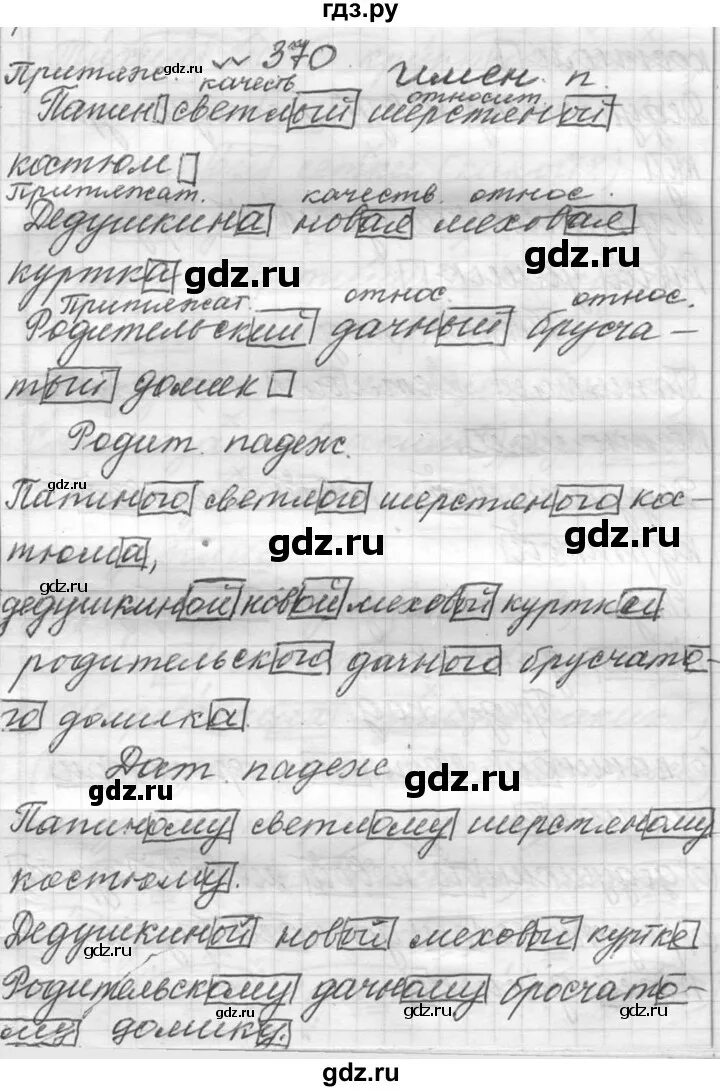 гдз.ру
№ 370
Притяж. качеств. Имен. п.
относит.
Папин светлый шерстяной
костюм
Притяжат. качеств. относ.
Дедушкина новая меховая
куртка
Притяжат. относ. относ.
Родительский дачный брусча-
тый домик
Родит. падеж.
Папиного светлого шерстяного кос-
тюма,
дедушкиной новой меховой куртки
родительского дачного брусчато-
го домика.
Дат. падеж
Папиному светлому шерстяному
костюму.
Дедушкиной новой меховой куртке
Родительскому дачному бросчато-
му домику.
gdz.ru
gdz.ru
gdz.ru
gdz.ru
gdz.ru
gdz.ru
gdz.ru
gdz.ru
gdz.ru
gdz.ru
gdz.ru
gdz.ru
gdz.ru